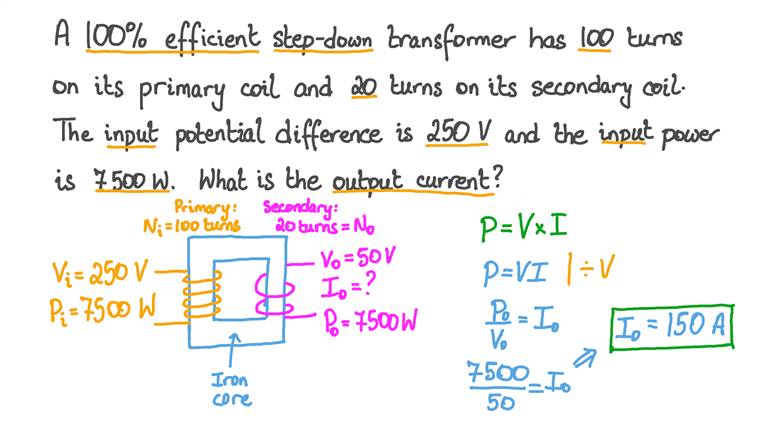 A 100% efficient step-down transformer has 100 turns
on its primary coil and 20 turns on its secondary coil.
The input potential difference is 250 V and the input power
is 7500 W. What is the output current?
Primary:
Nᵢ = 100 turns
Secondary:
20 turns = Nₒ
Vᵢ = 250 V
Pᵢ = 7500 W
Vₒ = 50 V
Iₒ = ?
Pₒ = 7500 W
Iron
core
P = V × I
P = VI | ÷ V
Pₒ/Vₒ = Iₒ
7500/50 = Iₒ
Iₒ = 150 A